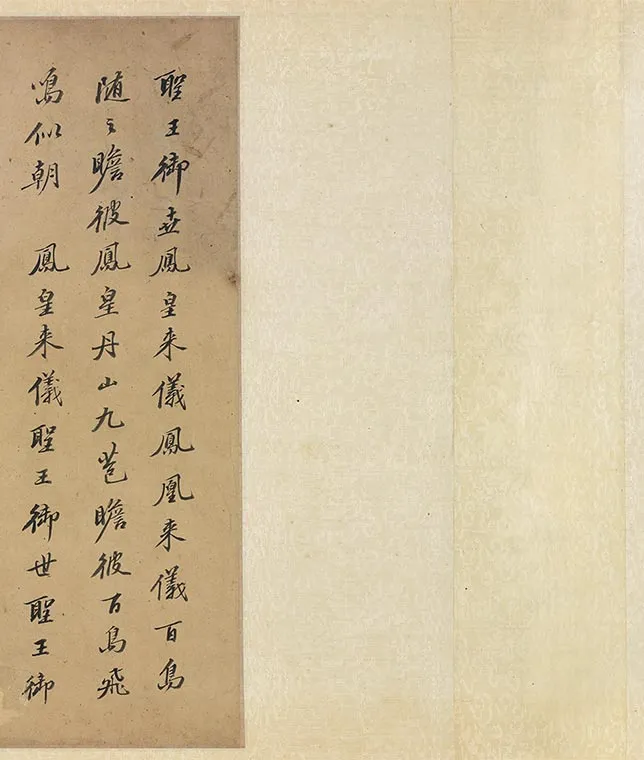 聖王御世鳳皇来儀鳳凰来儀百鳥
随之瞻彼鳳皇丹山九苞瞻彼百鳥飛
鳴似朝 鳳皇来儀聖王御世聖王御